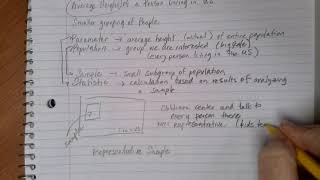 (Average Height of a Person living in US
Smaller grouping of People.
Parameter → average height (actual) of entire population
Population → group we are interested (big group)
(every person living in the US)
Sample → Small subgroup of population
Statistic → calculation based on results of analyzing
sample
Children center and talk to
every person there
not representative (kids
sample
Representative Sample